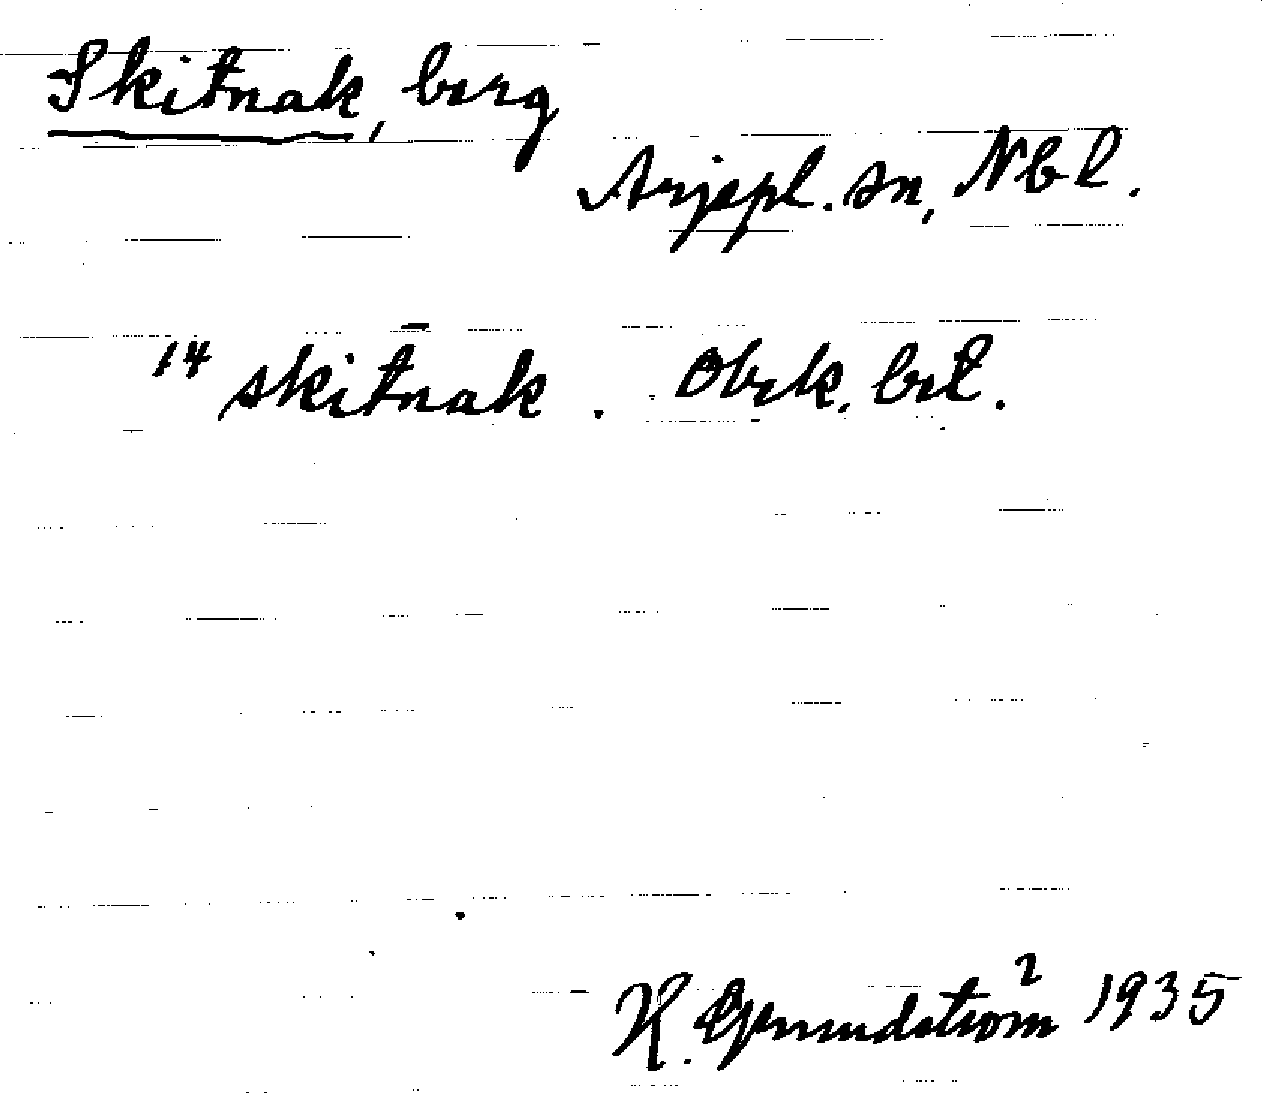 Skitnak, berg
Arjepl. sn, Nbl.
14 skit̄nak. Obrk. bet.
K. Grundström 1935